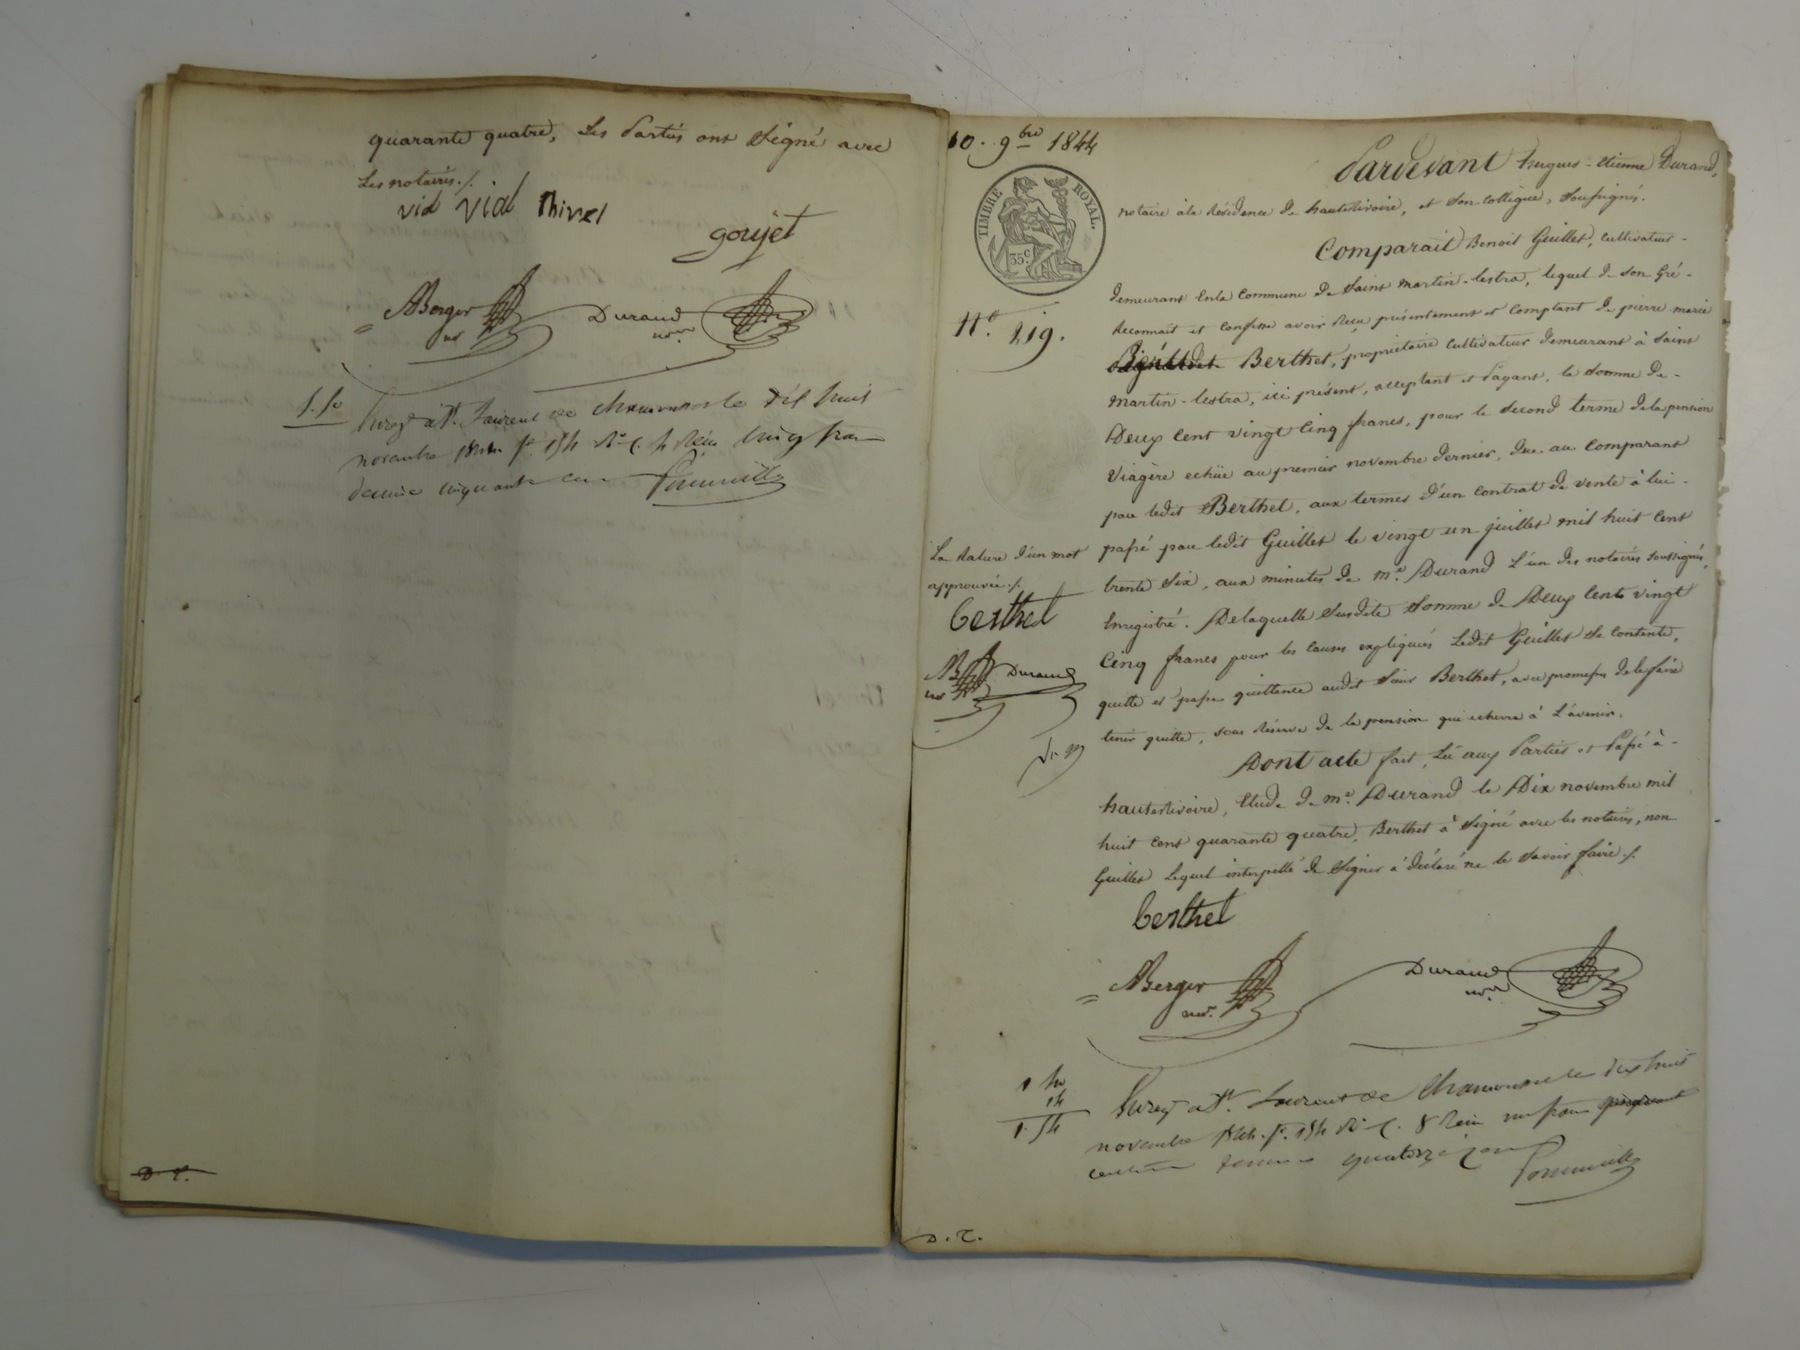 quarante quatre, Les Parties ont Signé avec
Les notaires ./.
vial vial Thivel
goujet
Berger
Durand
nore
1. 50
Enregé à St. Laurent de Chamousset le dix huit
novembre 1844 fo. 154 Ro. C. 4 Reçu cinq francs
décime cinquante cen
D. T.
10. 9bre 1844
TIMBRE ROYAL.
35 c
No. 219.
Pardevant hugues-etienne Durand,
notaire à la Résidence de hauterivoire, et son collègue, soussignés.
Comparait Benoit Guillet, cultivateur-
demeurant en la Commune de Saint martin-lestra, lequel de son Gré-
Reconnait et confesse avoir Reçu présentement et comptant de pierre marie
Berthet, propriétaire cultivateur demeurant à Saint
martin-lestra, ici présent, acceptant et Payant, la Somme de-
Deux cent vingt cinq francs, pour le second terme de la pension
viagère echüe au premier novembre dernier, due au comparant
par ledit Berthet, aux termes d'un contrat de vente à lui-
passé par ledit Guillet le vingt un juillet mil huit cent
trente Six, aux minutes de me. Durand L'un des notaires soussignés,
Enregistré. De laquelle Susdite Somme de Deux cents vingt
Cinq francs pour les causes expliquées Ledit Guillet Se contente,
quitte et passe quittance audit Sieur Berthet, avec promesse de le faire
tenir quitte, sous Réserve de la pension qui echerra à L'avenir.
La Rature d'un mot
approuvée ./.
berthet
Durand
Dont acte fait, Lu aux Parties et Passé à-
hauterivoire, Etude de me. Durand le Dix novembre mil
huit cent quarante quatre, Berthet a Signé avec les notaires, non
Guillet Lequel interpellé de Signer a déclaré ne le savoir faire ./.
berthet
Berger
nore.
Durand
nore
Enregé à St. Laurent de Chamousset le dix huit
novembre 1844. fo. 154 Ro. C. 8 Reçu un franc
centimes décime quatorze cen
D. T.